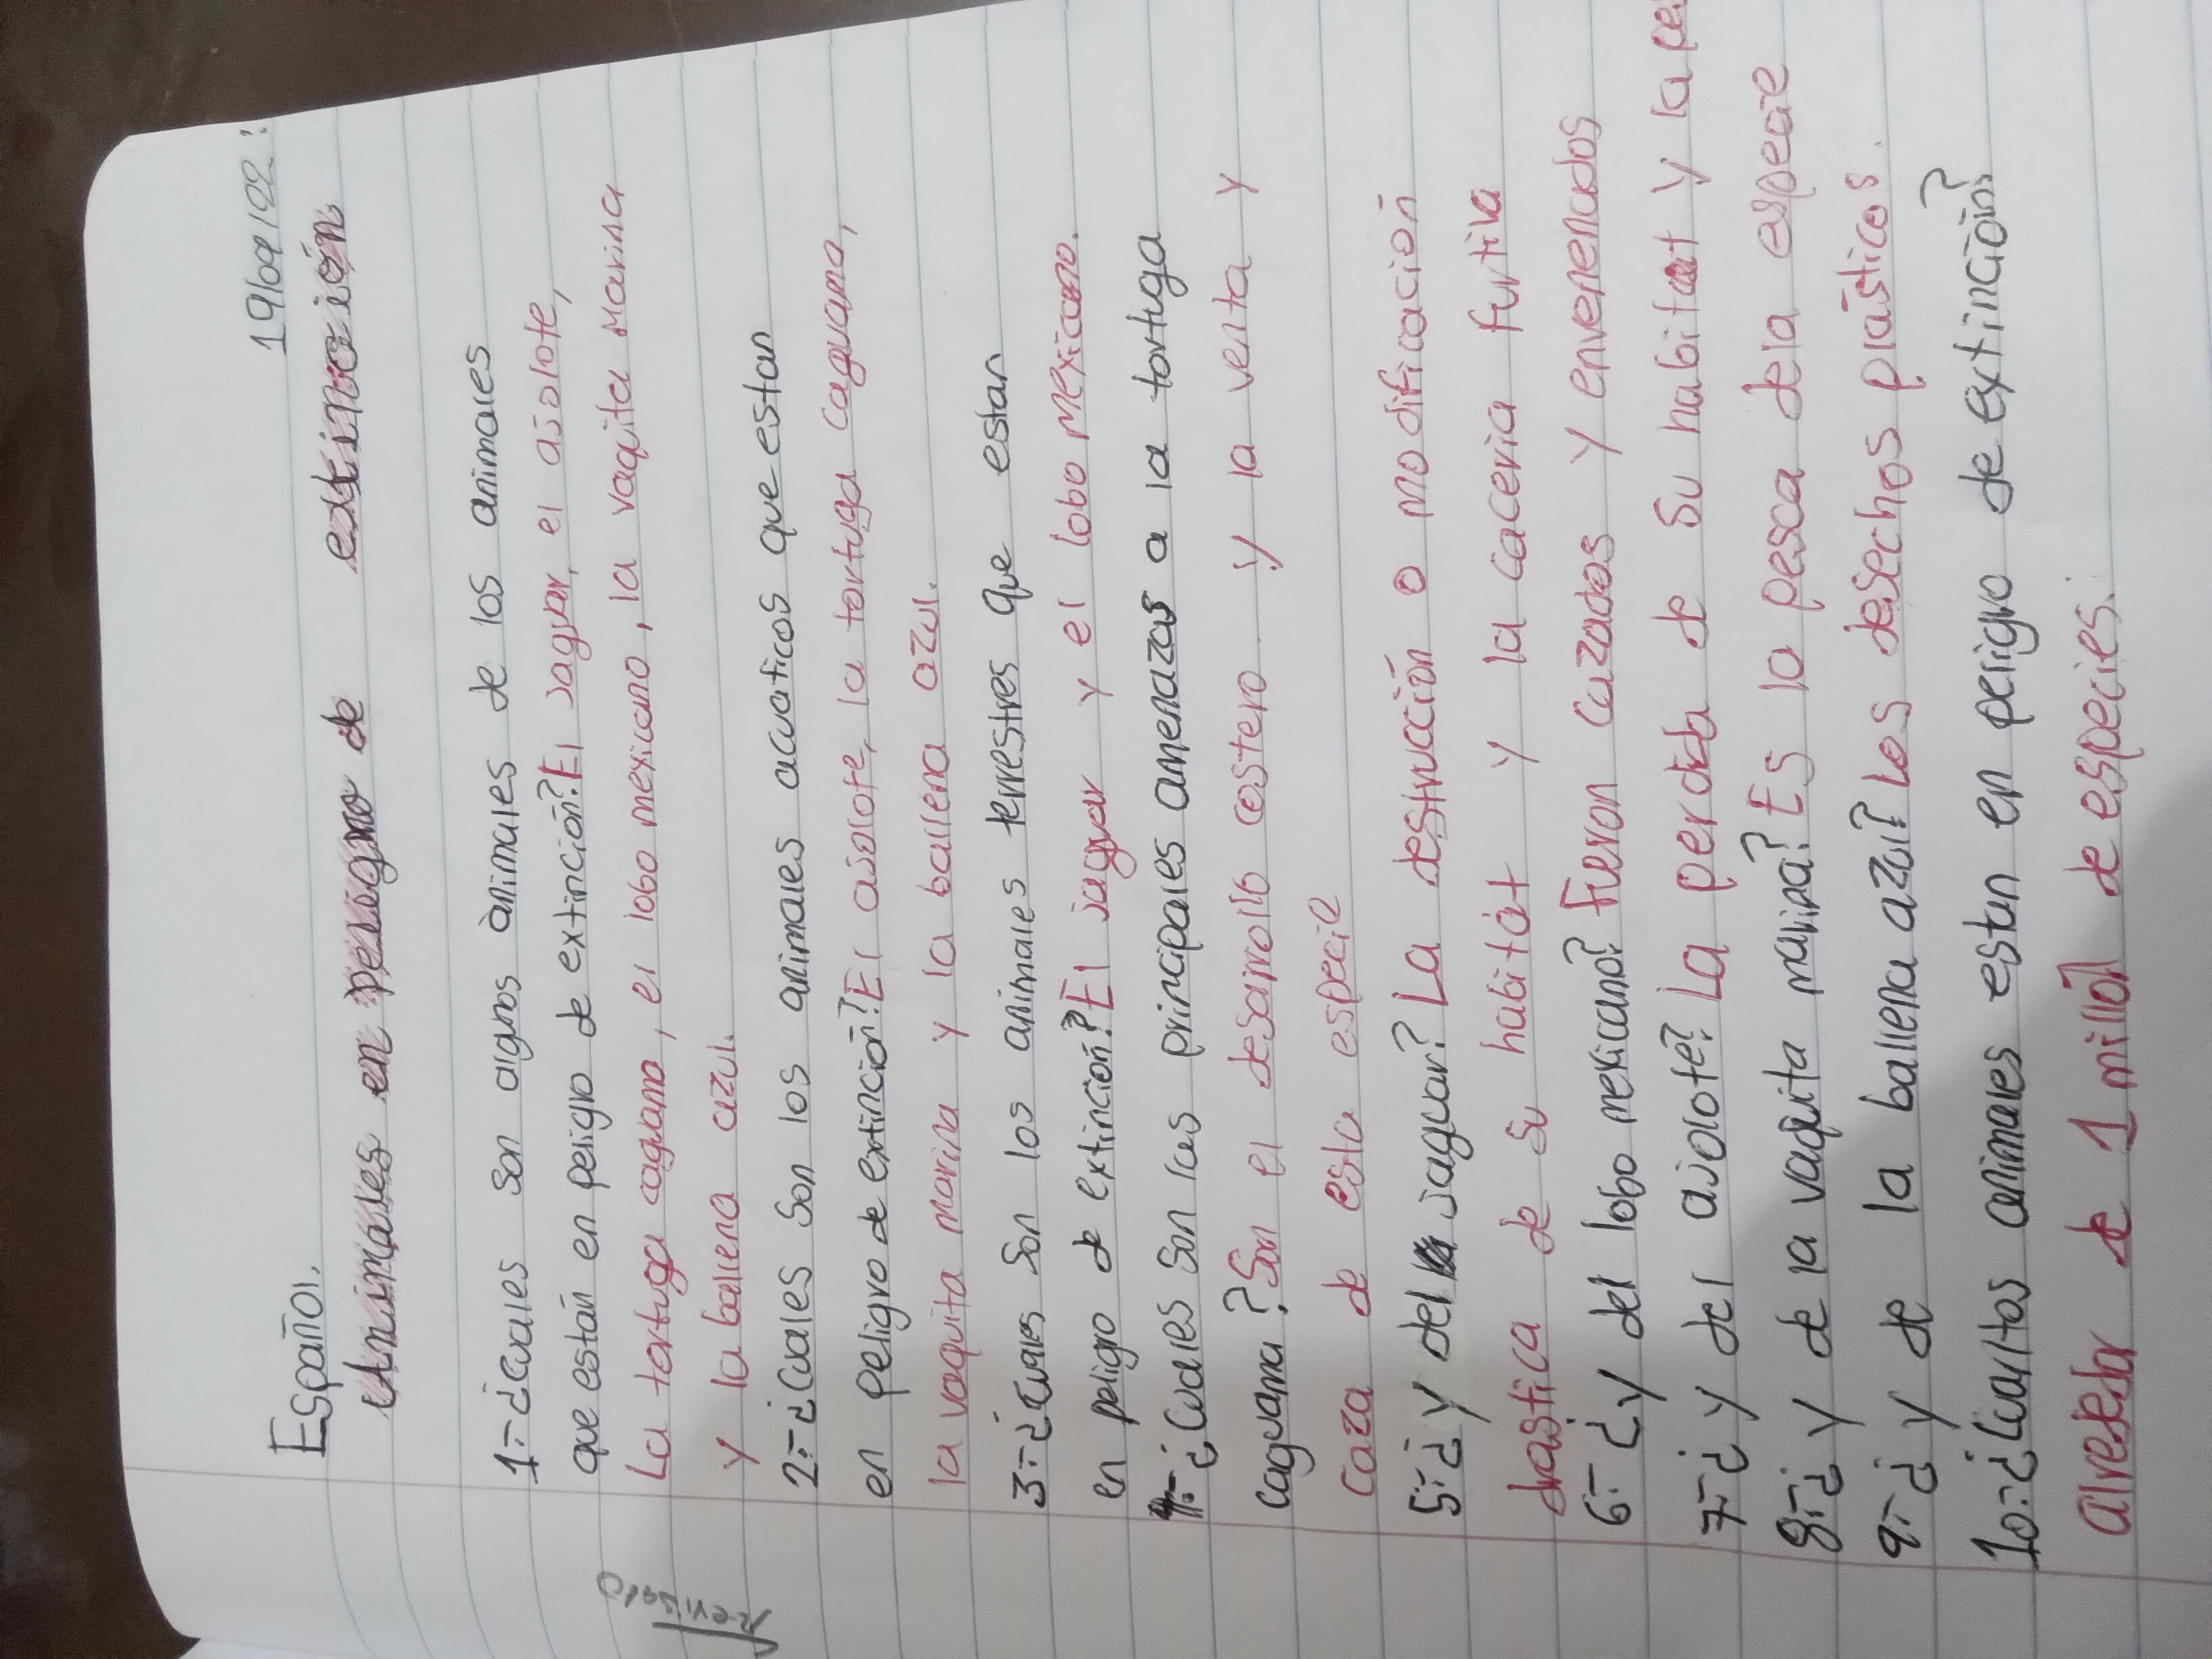 19/09/22.
Español.
Animales en peligro de extinción
1.-¿Cuales son algnos animales de los animales
que están en peligro de extinción? El jaguar, el ajolote,
La tortuga caguama, el lobo mexicano, la vaquita Marina
y la ballena azul.
2.-¿Cuales son los animales acuaticos que estan
en peligro de extinción? El ajolote, la tortuga caguama,
la vaquita marina y la ballena azul.
3.-¿Cuales son los animales terrestres que estan
en peligro de extinción? El jaguar y el lobo mexicano.
4.-¿Cuales son las principales amenazas a la tortuga
caguama? Son el desarrollo costero y la venta y
caza de esta especie
5.-¿Y del jaguar? La destrucción o modificación
drastica de su habitat y la caceria furtiva
6.-¿Y del lobo mexicano? Fueron cazados y envenenados
7.-¿Y del ajolote? La perdida de su habitat y la
8.-¿Y de la vaquita marina? Es la pesca dela especie
9.-¿Y de la ballena azul? Los desechos plásticos.
10.-¿Cuantos animales estan en peligro de extinción?
alrededor de 1 millón de especies.
Revisado